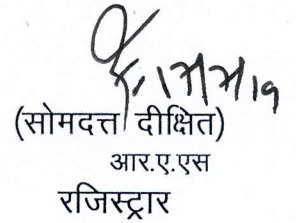 (सोमदत्त दीक्षित)
आर.ए.एस
रजिस्ट्रार